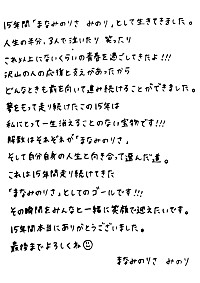 15年間「まなみのりさ みのり」として生きてきました。
人生の半分、3人で泣いたり 笑ったり
これ以上にないくらいの青春を過ごしてきたよ!!!
沢山の人の応援と支えがあったから
どんなときも前を向いて進み続けることができました。
夢をもって走り続けたこの15年は
私にとって一生消えることのない宝物です!!!
解散はそれぞれが「まなみのりさ」
そして自分自身の人生と向き合って選んだ道。
これは15年間走り続けてきた
「まなみのりさ」としてのゴールです!!!
その瞬間をみんなと一緒に笑顔で迎えたいです。
15年間本当にありがとうございました。
最後までよろしくね
まなみのりさ みのり